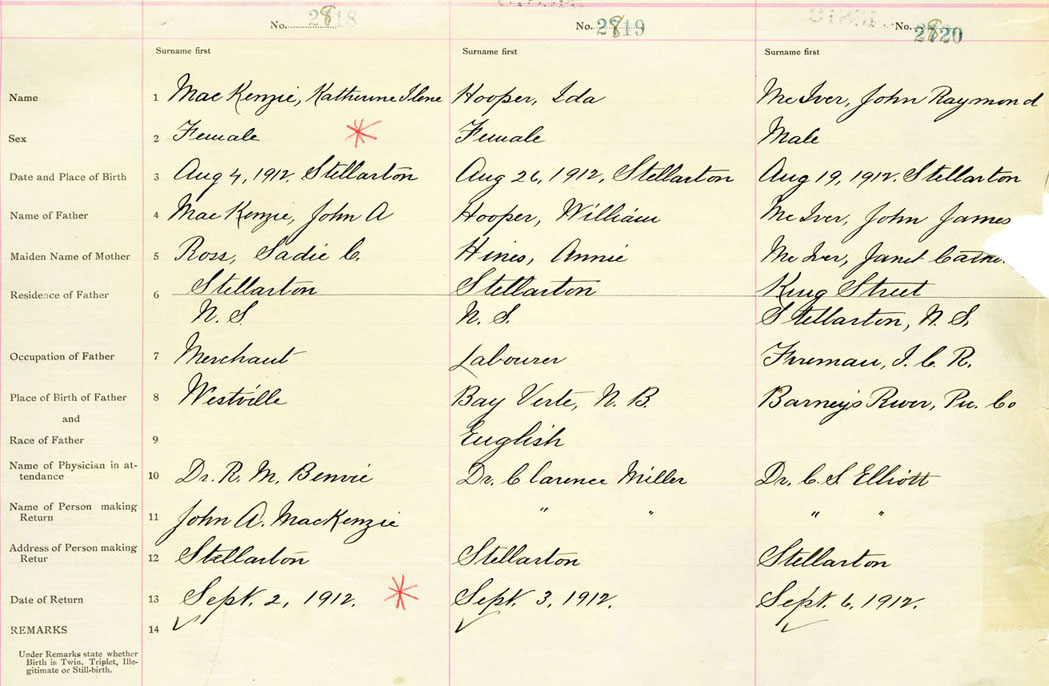 No. 2818 No. 2819 No. 2820
Surname first Surname first Surname first
Name 1 MacKenzie, Katherine Ilene Hooper, Ida McIver, John Raymond
Sex 2 Female Female Male
Date and Place of Birth 3 Aug 4, 1912. Stellarton Aug 26, 1912, Stellarton Aug 19, 1912. Stellarton
Name of Father 4 MacKenzie, John A Hooper, William McIver, John James
Maiden Name of Mother 5 Ross, Sadie C. Hines, Annie McIver, Janet
Residence of Father 6 Stellarton Stellarton King Street
N.S. N.S. Stellarton, N.S.
Occupation of Father 7 Merchant Labourer Fireman, I.C.R.
Place of Birth of Father 8 Westville Bay Verte, N.B. Barney's River, Pic. Co
and
Race of Father 9 English
Name of Physician in at-
tendance 10 Dr. R. M. Benvie Dr. Clarence Miller Dr. C. S. Elliott
Name of Person making
Return 11 John A. MacKenzie " " " "
Address of Person making
Retur 12 Stellarton Stellarton Stellarton
Date of Return 13 Sept. 2, 1912. Sept. 3, 1912. Sept. 6, 1912.
REMARKS 14
Under Remarks state whether
Birth is Twin, Triplet, Ille-
gitimate or Still-birth.